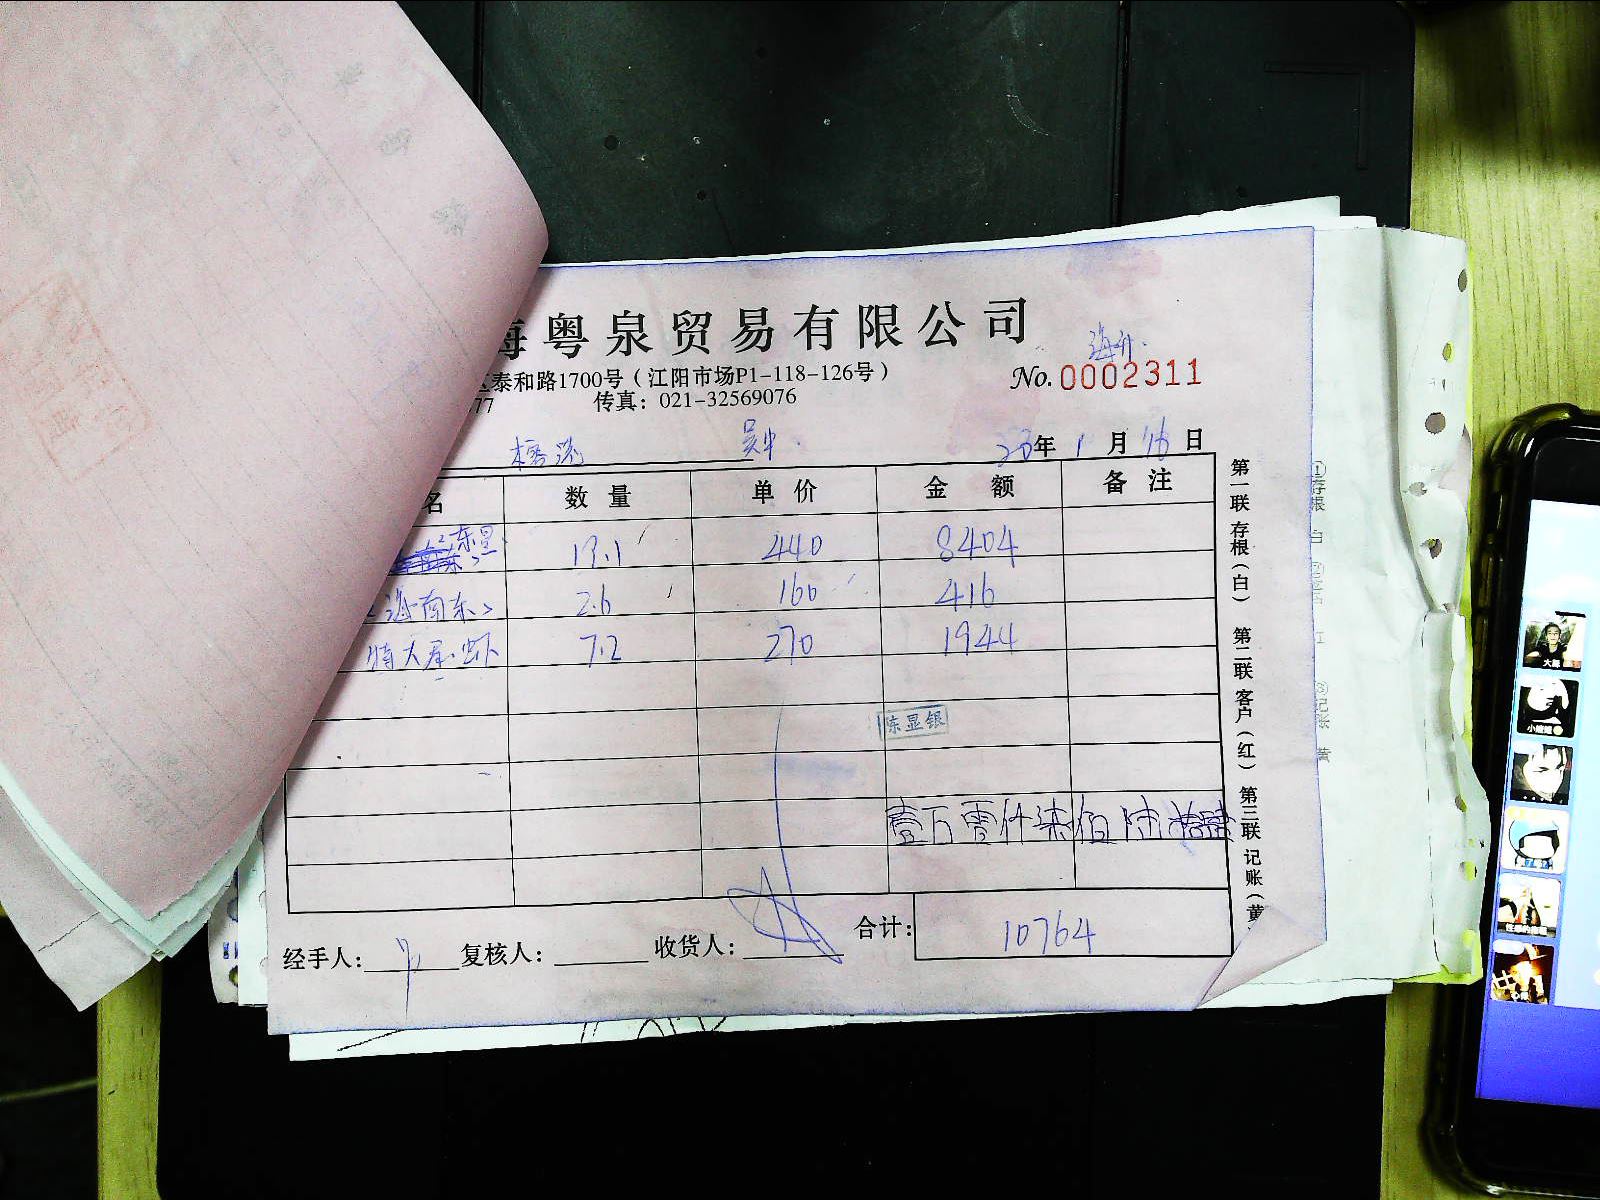 海粤泉贸易有限公司
区泰和路1700号（江阳市场P1-118-126号）
77 传真：021-32569076
海升
No. 0002311
吴中
年 1 月 16 日
名 数量 单价 金额 备注
东星 19.1 440 8404
海南东 2.6 160 416
特大尾虾 7.2 270 1944
陈显银
壹万零仟柒佰陆拾肆
合计： 10764
经手人： 复核人： 收货人：
第一联 存根（白） 第二联 客户（红） 第三联 记账（黄